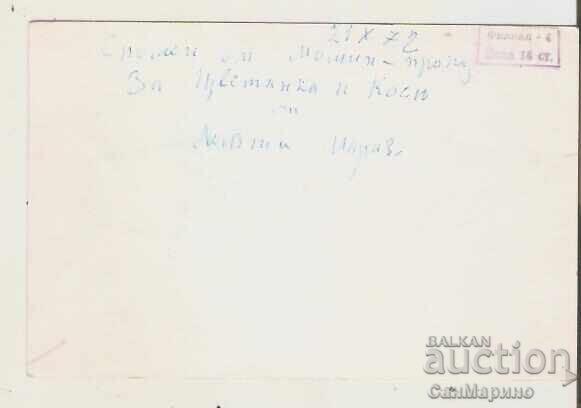 21 X 72
Филиал - 4
Цена 14 ст.
Спомен от Момин-проход
За Цветанка и Коси
от
BALKAN
auction
СанМарино